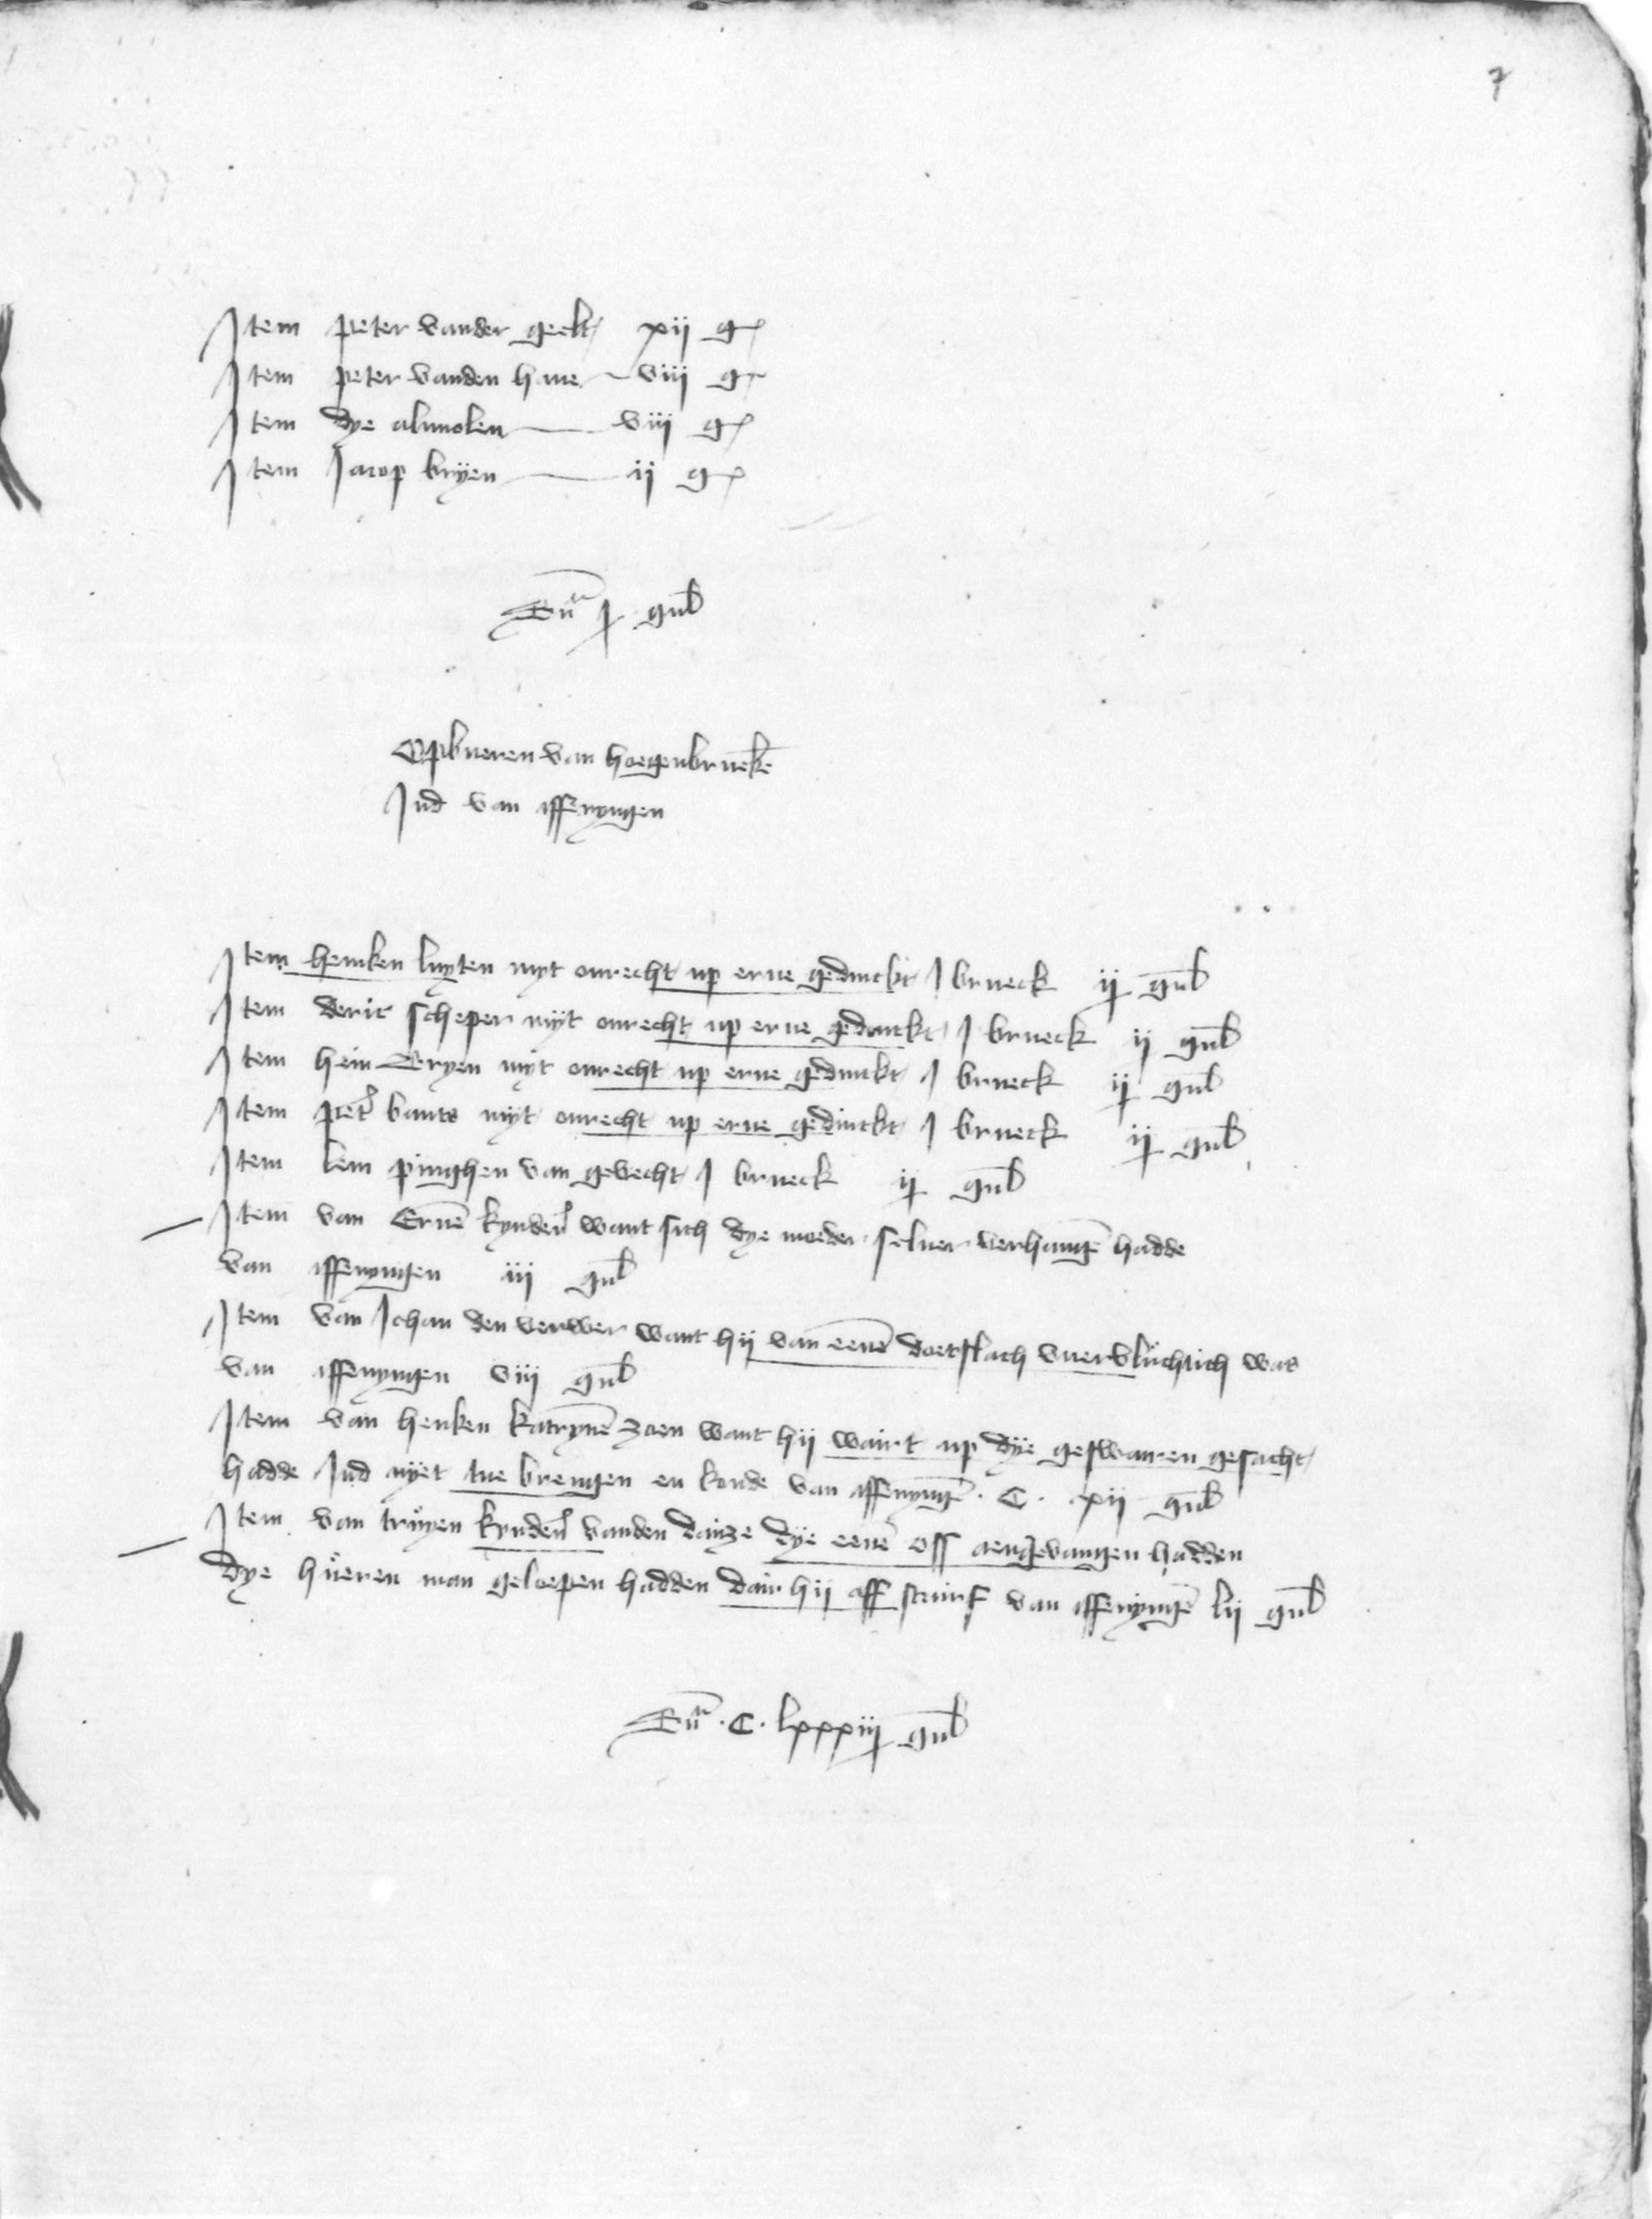 7
Item peter vander geelt xij g
Item peter vanden haue viij g
Item dye alimolen viij g
Item Jacop bryen ij g
Su͞a j gul
Opbueren van hoegenbrueke͞
Ind van affenyngen
Item henken luyten myt onrecht up erue gedinckt j brueck ij gul
Item deric scheper myt onrecht up erue gedinckt j brueck ij gul
Item hein Bryen myt onrecht up erue gedinckt j brueck ij gul
Item pet' bants myt onrecht up erue gedinckt j brueck ij gul
Item lem pinghen van gevecht j brueck ij gul
Item van Erne͞ kynder' want sich dye moeder seluer verhange͞ hadde
van affenyngen iij gul
Item van Johan den verwer want hij van eene͞ doetslach vuervluchtich was
van affenyngen viij gul
Item van henken katryne͞ zoen want hij wairt up dye geswaren gesacht
hadde Ind nyet tue brengen en konde van affenynge͞ . C . xij gul
Item van truyen kynder' vanden dainze dye eene͞ oss aengevangen hadden
dye hueren man geloepen hadden dair hij aff steirf van affenynge͞ lij gul
Su͞a . C . lxxxiij gul